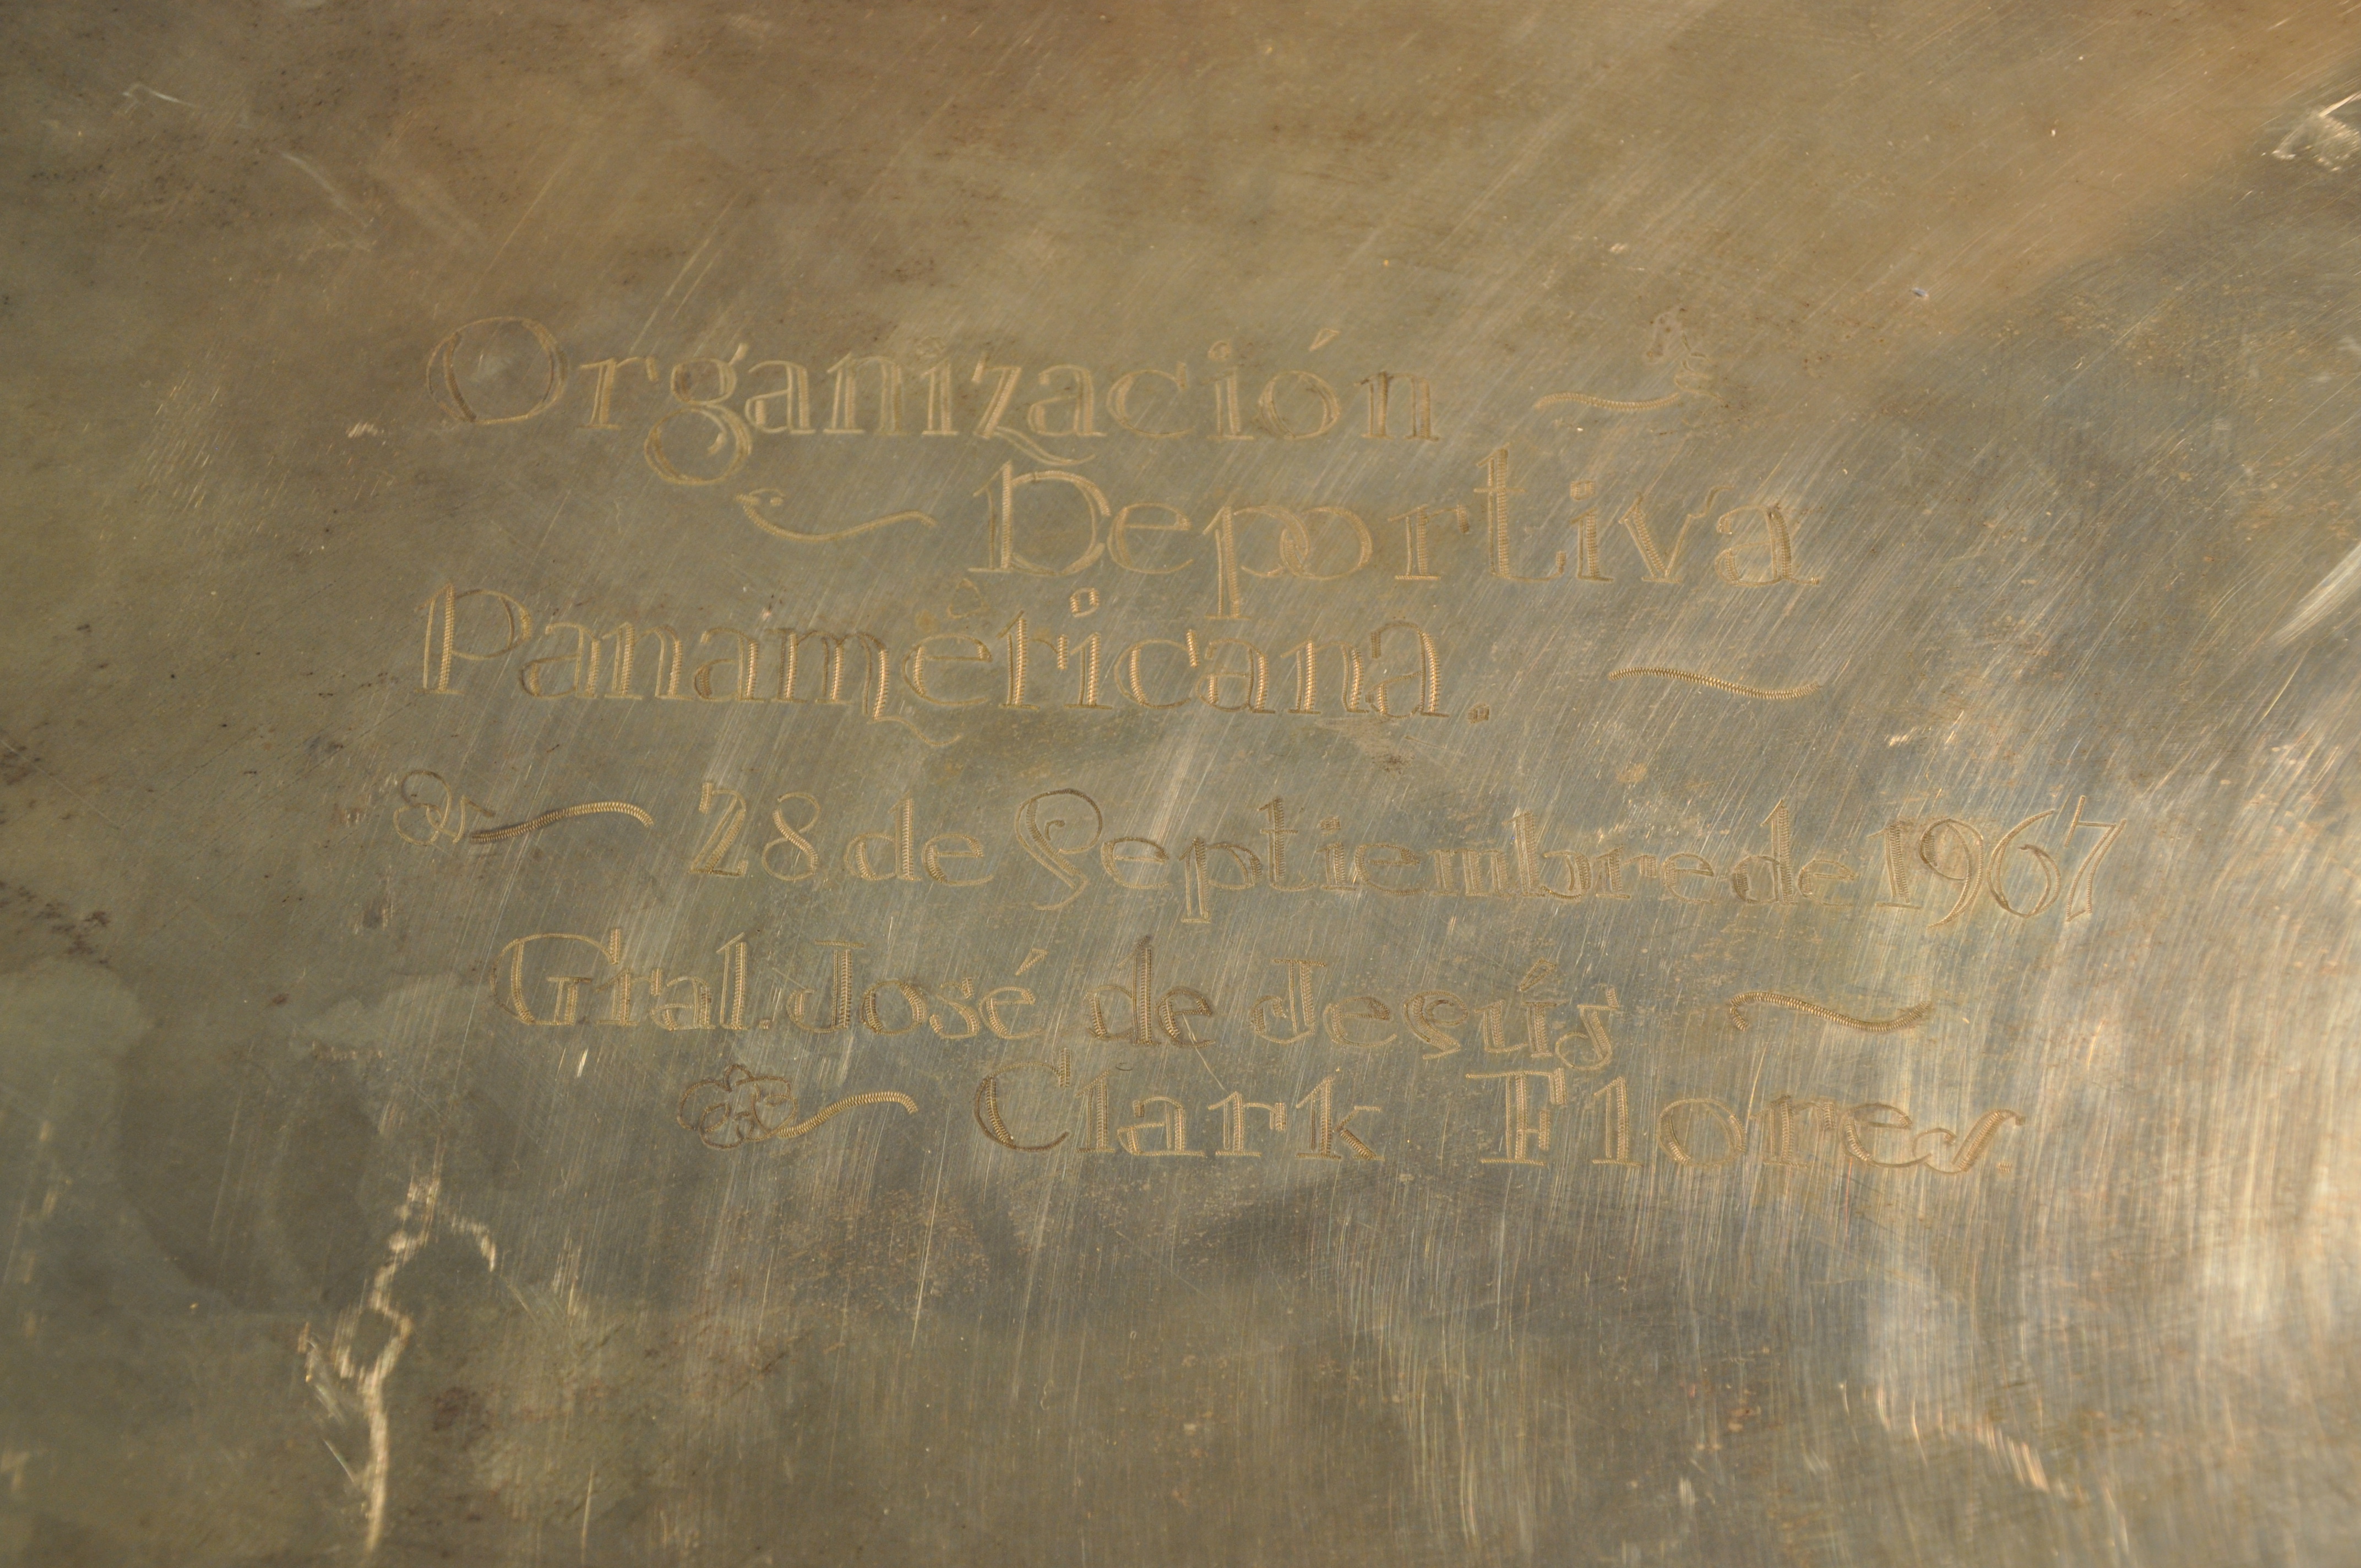 Organización
Deportiva
Panamericana.
28 de Septiembre de 1967
Gral. José de Jesús
Clark Flores.